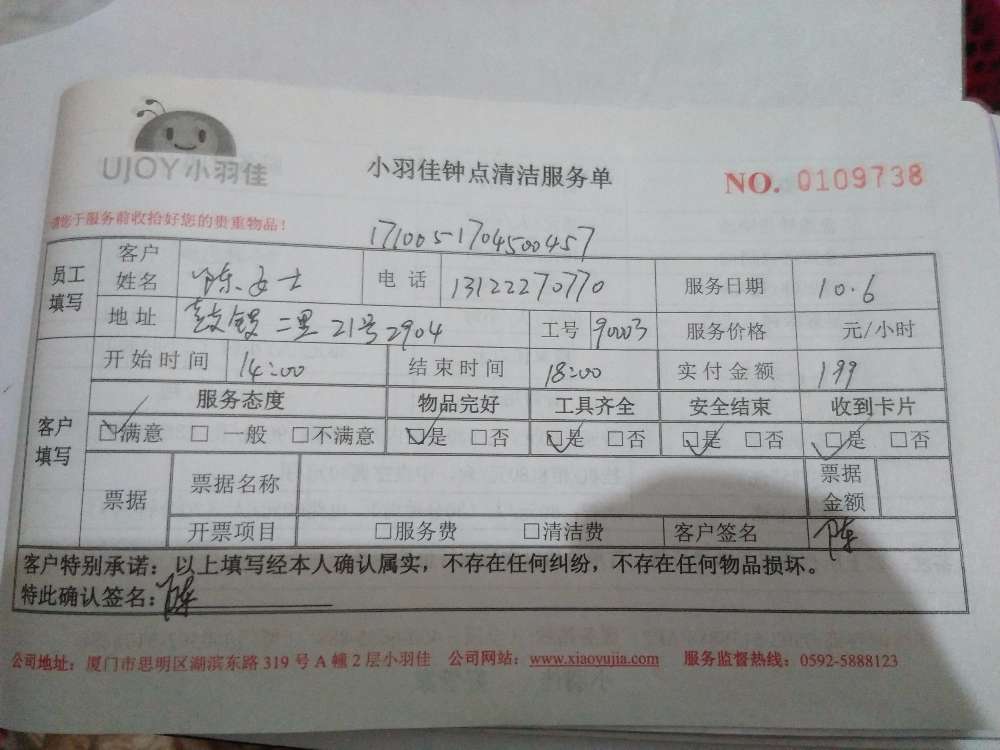 UJOY小羽佳
小羽佳钟点清洁服务单
NO. 0109738
请您于服务前收拾好您的贵重物品!
171005170450045​7
员工填写 客户姓名 陈女士 电话 13122270770 服务日期 10.6
地址 二里21号2904 工号 90003 服务价格 元/小时
客户填写 开始时间 14:00 结束时间 18:00 实付金额 199
服务态度 物品完好 工具齐全 安全结束 收到卡片
☑满意 □一般 □不满意 ☑是 □否 ☑是 □否 ☑是 □否 ☑是 □否
票据 票据名称 票据金额
开票项目 □服务费 □清洁费 客户签名 陈
客户特别承诺：以上填写经本人确认属实，不存在任何纠纷，不存在任何物品损坏。
特此确认签名：陈
公司地址：厦门市思明区湖滨东路319号A幢2层小羽佳 公司网站：www.xiaoyujia.com 服务监督热线：0592-5888123